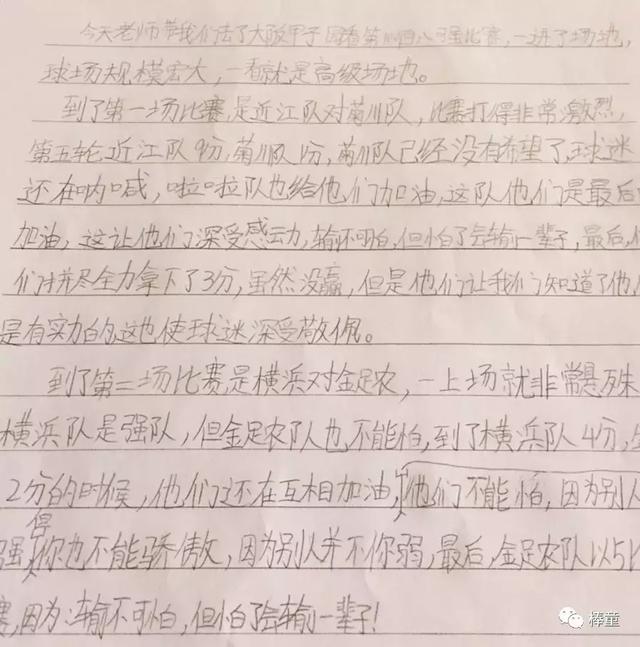 今天老师带我们去了大阪甲子园看第 八强比赛,一进了场地,
球场规模宏大,一看就是高级场地。
到了第一场比赛,是近江队对菊川队,比赛打得非常激烈,
第五轮近江队9分,菊川队1分,菊川队已经没有希望了,球迷
还在呐喊,啦啦队也给他们加油,这队他们是最后
加油,这让他们深受感动,输不可怕,但怕了会输一辈子,最后,
们拼尽全力拿下了3分,虽然没赢,但是他们让我们知道了他
是有实力的,这也使球迷深受敬佩。
到了第二场比赛是横滨对金足农,一上场就非常悬殊
横滨队是强队,但金足农队也不能怕,到了横滨队4分,
2分的时候,他们还在互相加油,他们不能怕,因为别人
强 你也不能骄傲,因为别人并不你弱,最后,金足农队以5
赛,因为:输不可怕,但怕了会输一辈子!
棒童